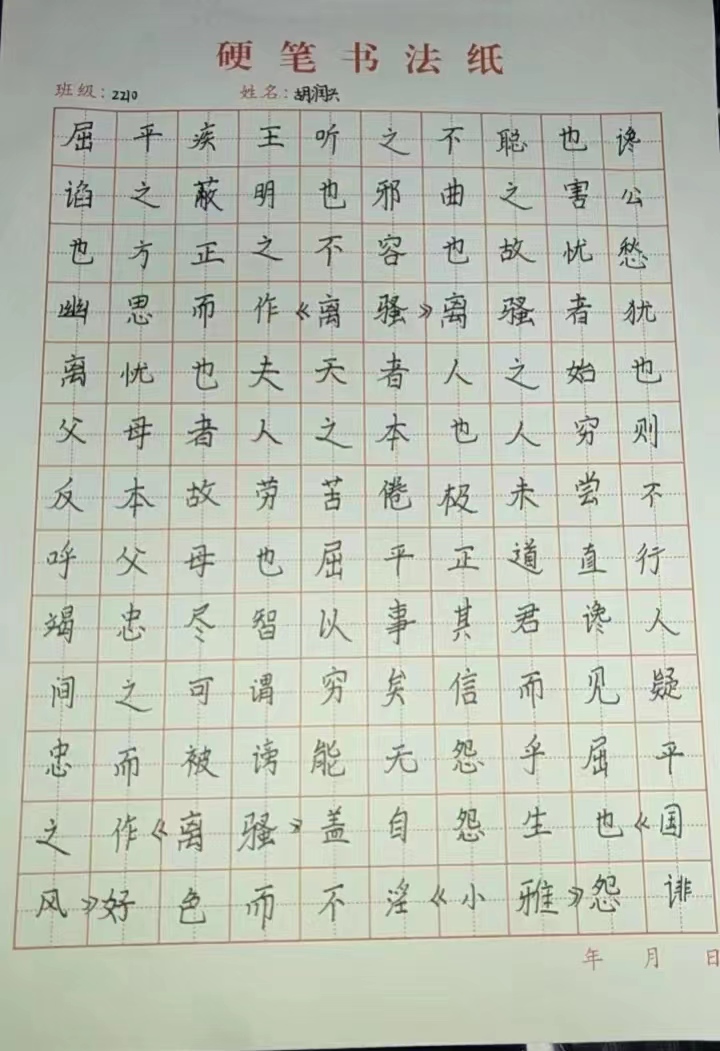 硬笔书法纸
班级：2210 姓名：胡润兴
屈平疾王听之不聪也谗
谄之蔽明也邪曲之害公
也方正之不容也故忧愁
幽思而作《离骚》离骚者犹
离忧也夫天者人之始也
父母者人之本也人穷则
反本故劳苦倦极未尝不
呼父母也屈平正道直行
竭忠尽智以事其君谗人
间之可谓穷矣信而见疑
忠而被谤能无怨乎屈平
之作《离骚》盖自怨生也《国
风》好色而不淫《小雅》怨诽
年 月 日